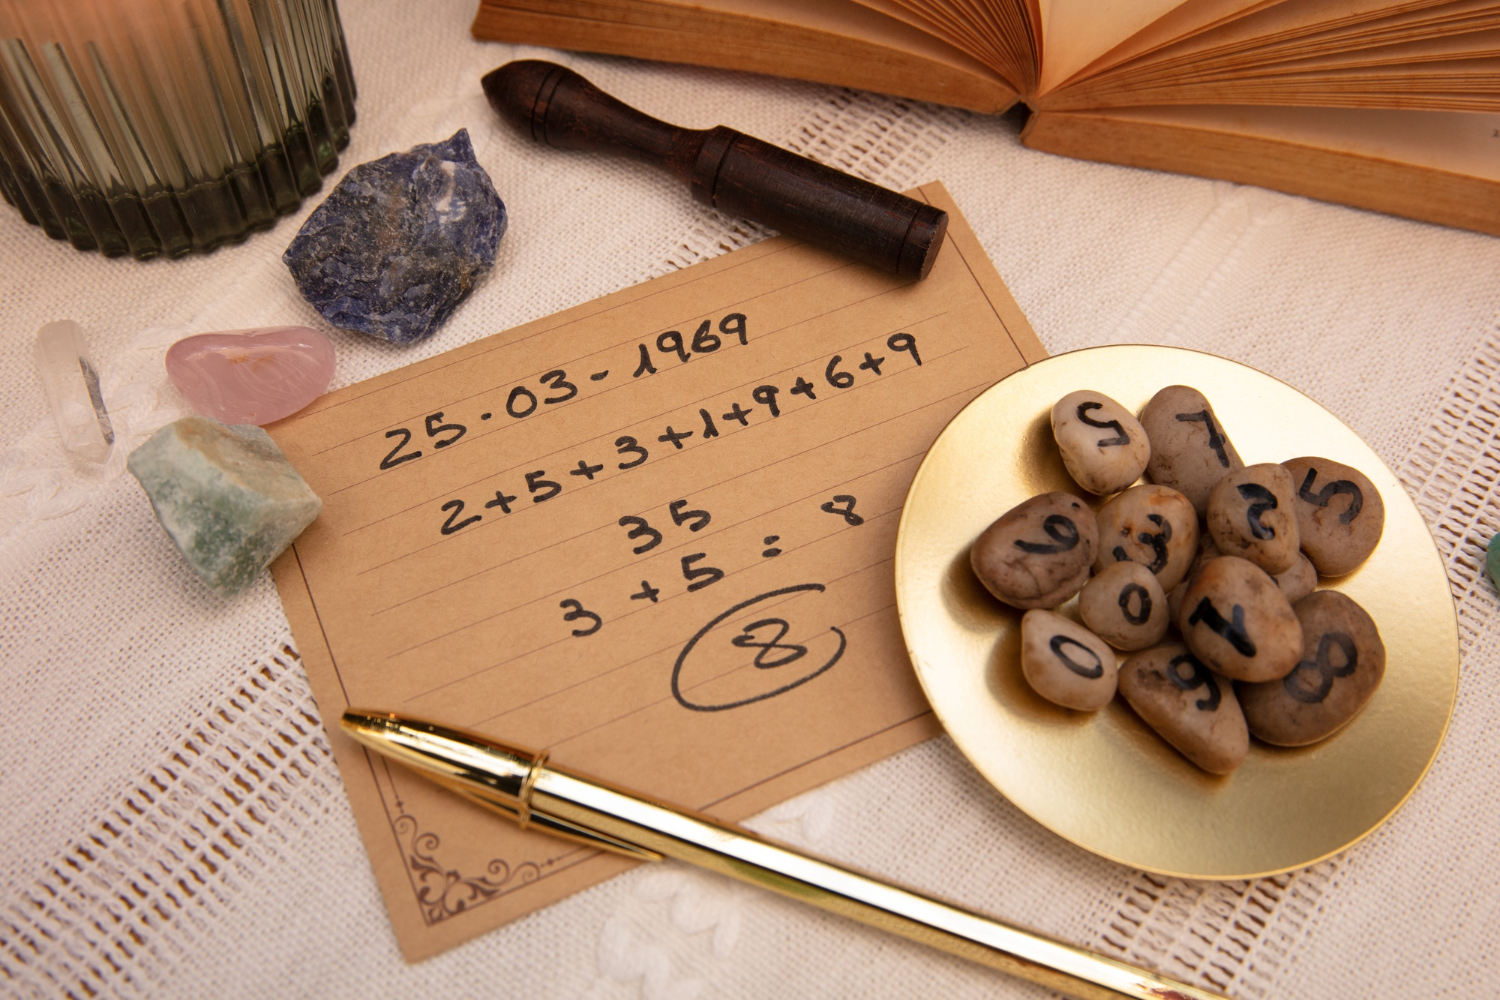 25-03-1969
2+5+3+1+9+6+9
35
3+5= 8
8
5
7
2
5
6
3
0
1
0
6
8